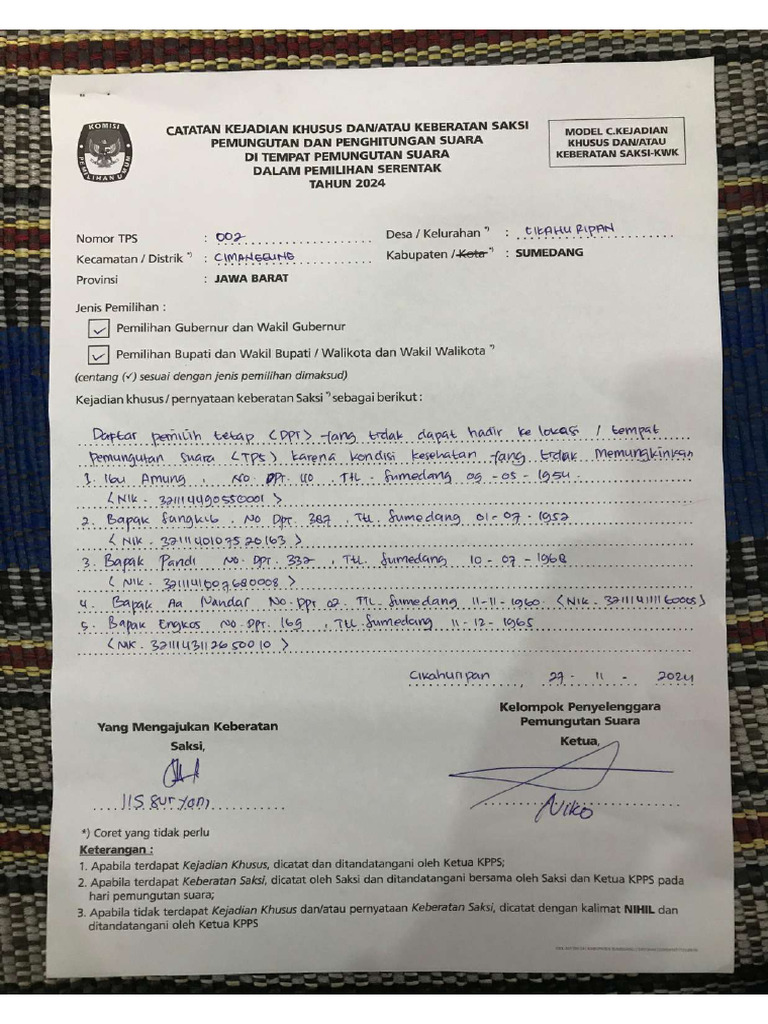 KOMISI
PEMILIHAN UMUM
CATATAN KEJADIAN KHUSUS DAN/ATAU KEBERATAN SAKSI
PEMUNGUTAN DAN PENGHITUNGAN SUARA
DI TEMPAT PEMUNGUTAN SUARA
DALAM PEMILIHAN SERENTAK
TAHUN 2024
MODEL C.KEJADIAN
KHUSUS DAN/ATAU
KEBERATAN SAKSI-KWK
Nomor TPS : 002 Desa / Kelurahan *) : CIKAHURIPAN
Kecamatan / Distrik *) : CIMANGGUNG Kabupaten / Kota *) : SUMEDANG
Provinsi : JAWA BARAT
Jenis Pemilihan :
✓ Pemilihan Gubernur dan Wakil Gubernur
✓ Pemilihan Bupati dan Wakil Bupati / Walikota dan Wakil Walikota *)
(centang (✓) sesuai dengan jenis pemilihan dimaksud)
Kejadian khusus / pernyataan keberatan Saksi *) sebagai berikut :
Daftar pemilih tetap (DPT) yang tidak dapat hadir ke lokasi / tempat
pemungutan suara (TPS) karena kondisi kesehatan yang tidak memungkinkan
1. Ibu Amung, No DPT. 110 TTL. Sumedang 09-05-1954
(NIK. 3211144905550001)
2. Bapak Sangkib, No DPT. 387, TTL. Sumedang 01-07-1952
(NIK. 3211140107520163)
3. Bapak Pandi No. DPT. 332, TTL Sumedang 10-07-1968
(NIK. 3211141007680008)
4. Bapak Aa Nandar No. DPT 02 TTL. Sumedang 11-11-1960 (NIK. 321114111160005)
5. Bapak Engkos No DPT. 169, TTL. Sumedang 11-12-1965
(NIK. 3211143112650010)
Cikahuripan, 27 - 11 - 2024
Yang Mengajukan Keberatan
Saksi,
IIS Suryani
Kelompok Penyelenggara
Pemungutan Suara
Ketua,
NIKO
*) Coret yang tidak perlu
Keterangan :
1. Apabila terdapat Kejadian Khusus, dicatat dan ditandatangani oleh Ketua KPPS;
2. Apabila terdapat Keberatan Saksi, dicatat oleh Saksi dan ditandatangani bersama oleh Saksi dan Ketua KPPS pada
hari pemungutan suara;
3. Apabila tidak terdapat Kejadian Khusus dan/atau pernyataan Keberatan Saksi, dicatat dengan kalimat NIHIL dan
ditandatangani oleh Ketua KPPS